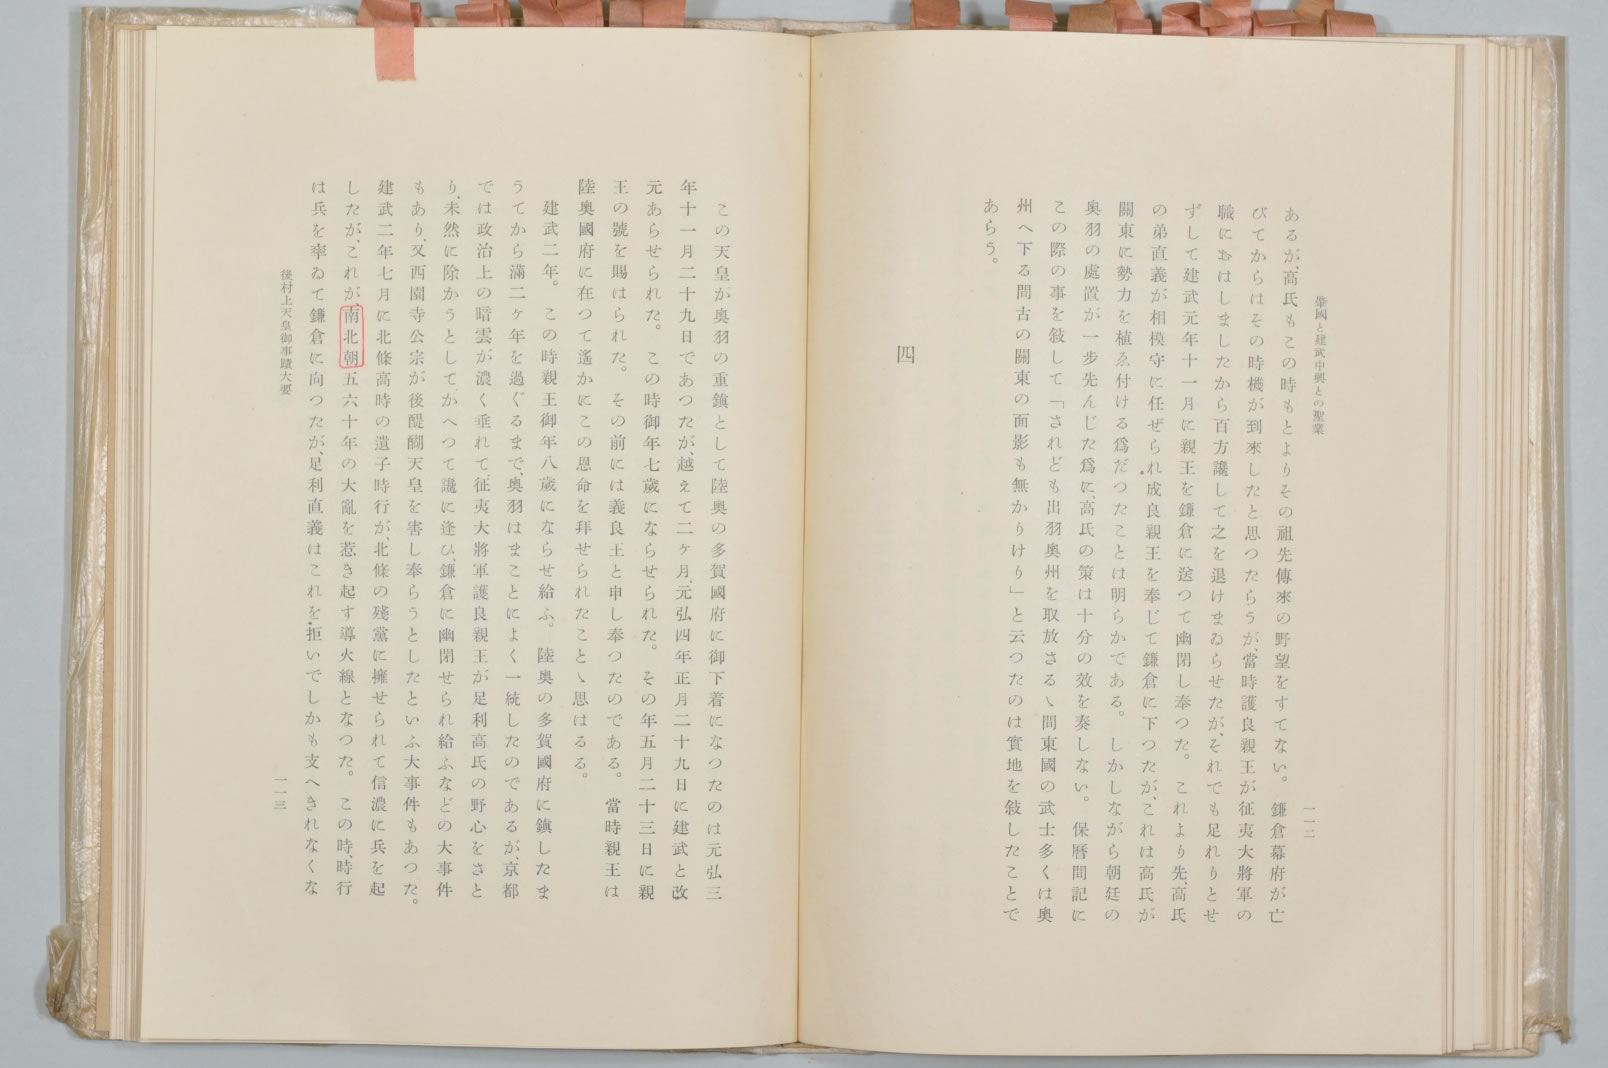 肇國と建武中興との聖業
一一二
あるが、高氏もこの時もとよりその祖先傳來の野望をすてない。 鎌倉幕府が亡
びてからはその時機が到來したと思つたらうが、當時護良親王が征夷大將軍の
職におはしましたから百方讒して之を退けまゐらせたが、それでも足れりとせ
ずして建武元年十一月に親王を鎌倉に送つて幽閉し奉つた。 これより先、高氏
の弟直義が相模守に任ぜられ成良親王を奉じて鎌倉に下つたが、これは高氏が
關東に勢力を植ゑ付ける爲だつたことは明らかである。 しかしながら朝廷の
奥羽の處置が一步先んじた爲に、高氏の策は十分の效を奏しない。 保暦間記に
この際の事を敍して「されども出羽奥州を取放さるゝ間東國の武士多くは奥
州へ下る間古の關東の面影も無かりけり」と云つたのは實地を敍したことで
あらう。
四
この天皇が奥羽の重鎭として陸奥の多賀國府に御下着になつたのは元弘三
年十一月二十九日であつたが、越えて二ヶ月、元弘四年正月二十九日に建武と改
元あらせられた。 この時御年七歲にならせられた。 その年五月二十三日に親
王の號を賜はられた。 その前には義良王と申し奉つたのである。 當時親王は
陸奥國府に在つて遙かにこの恩命を拜せられたことゝ思はるる。
建武二年。 この時親王御年八歲にならせ給ふ。 陸奥の多賀國府に鎭したま
うてから滿二ヶ年を過ぐるまで、奥羽はまことによく一統したのであるが、京都
では政治上の暗雲が濃く垂れて、征夷大將軍護良親王が足利高氏の野心をさと
り、未然に除かうとして、かへつて讒に逢ひ、鎌倉に幽閉せられ給ふなどの大事件
もあり、又西園寺公宗が後醍醐天皇を害し奉らうとしたといふ大事件もあつた。
建武二年七月に北條高時の遺子時行が、北條の殘黨に擁せられて信濃に兵を起
したが、これが、南北朝五六十年の大亂を惹き起す導火線となつた。 この時、時行
は兵を率ゐて鎌倉に向つたが、足利直義はこれを拒いでしかも支へきれなくな
後村上天皇御事蹟大要
一一三